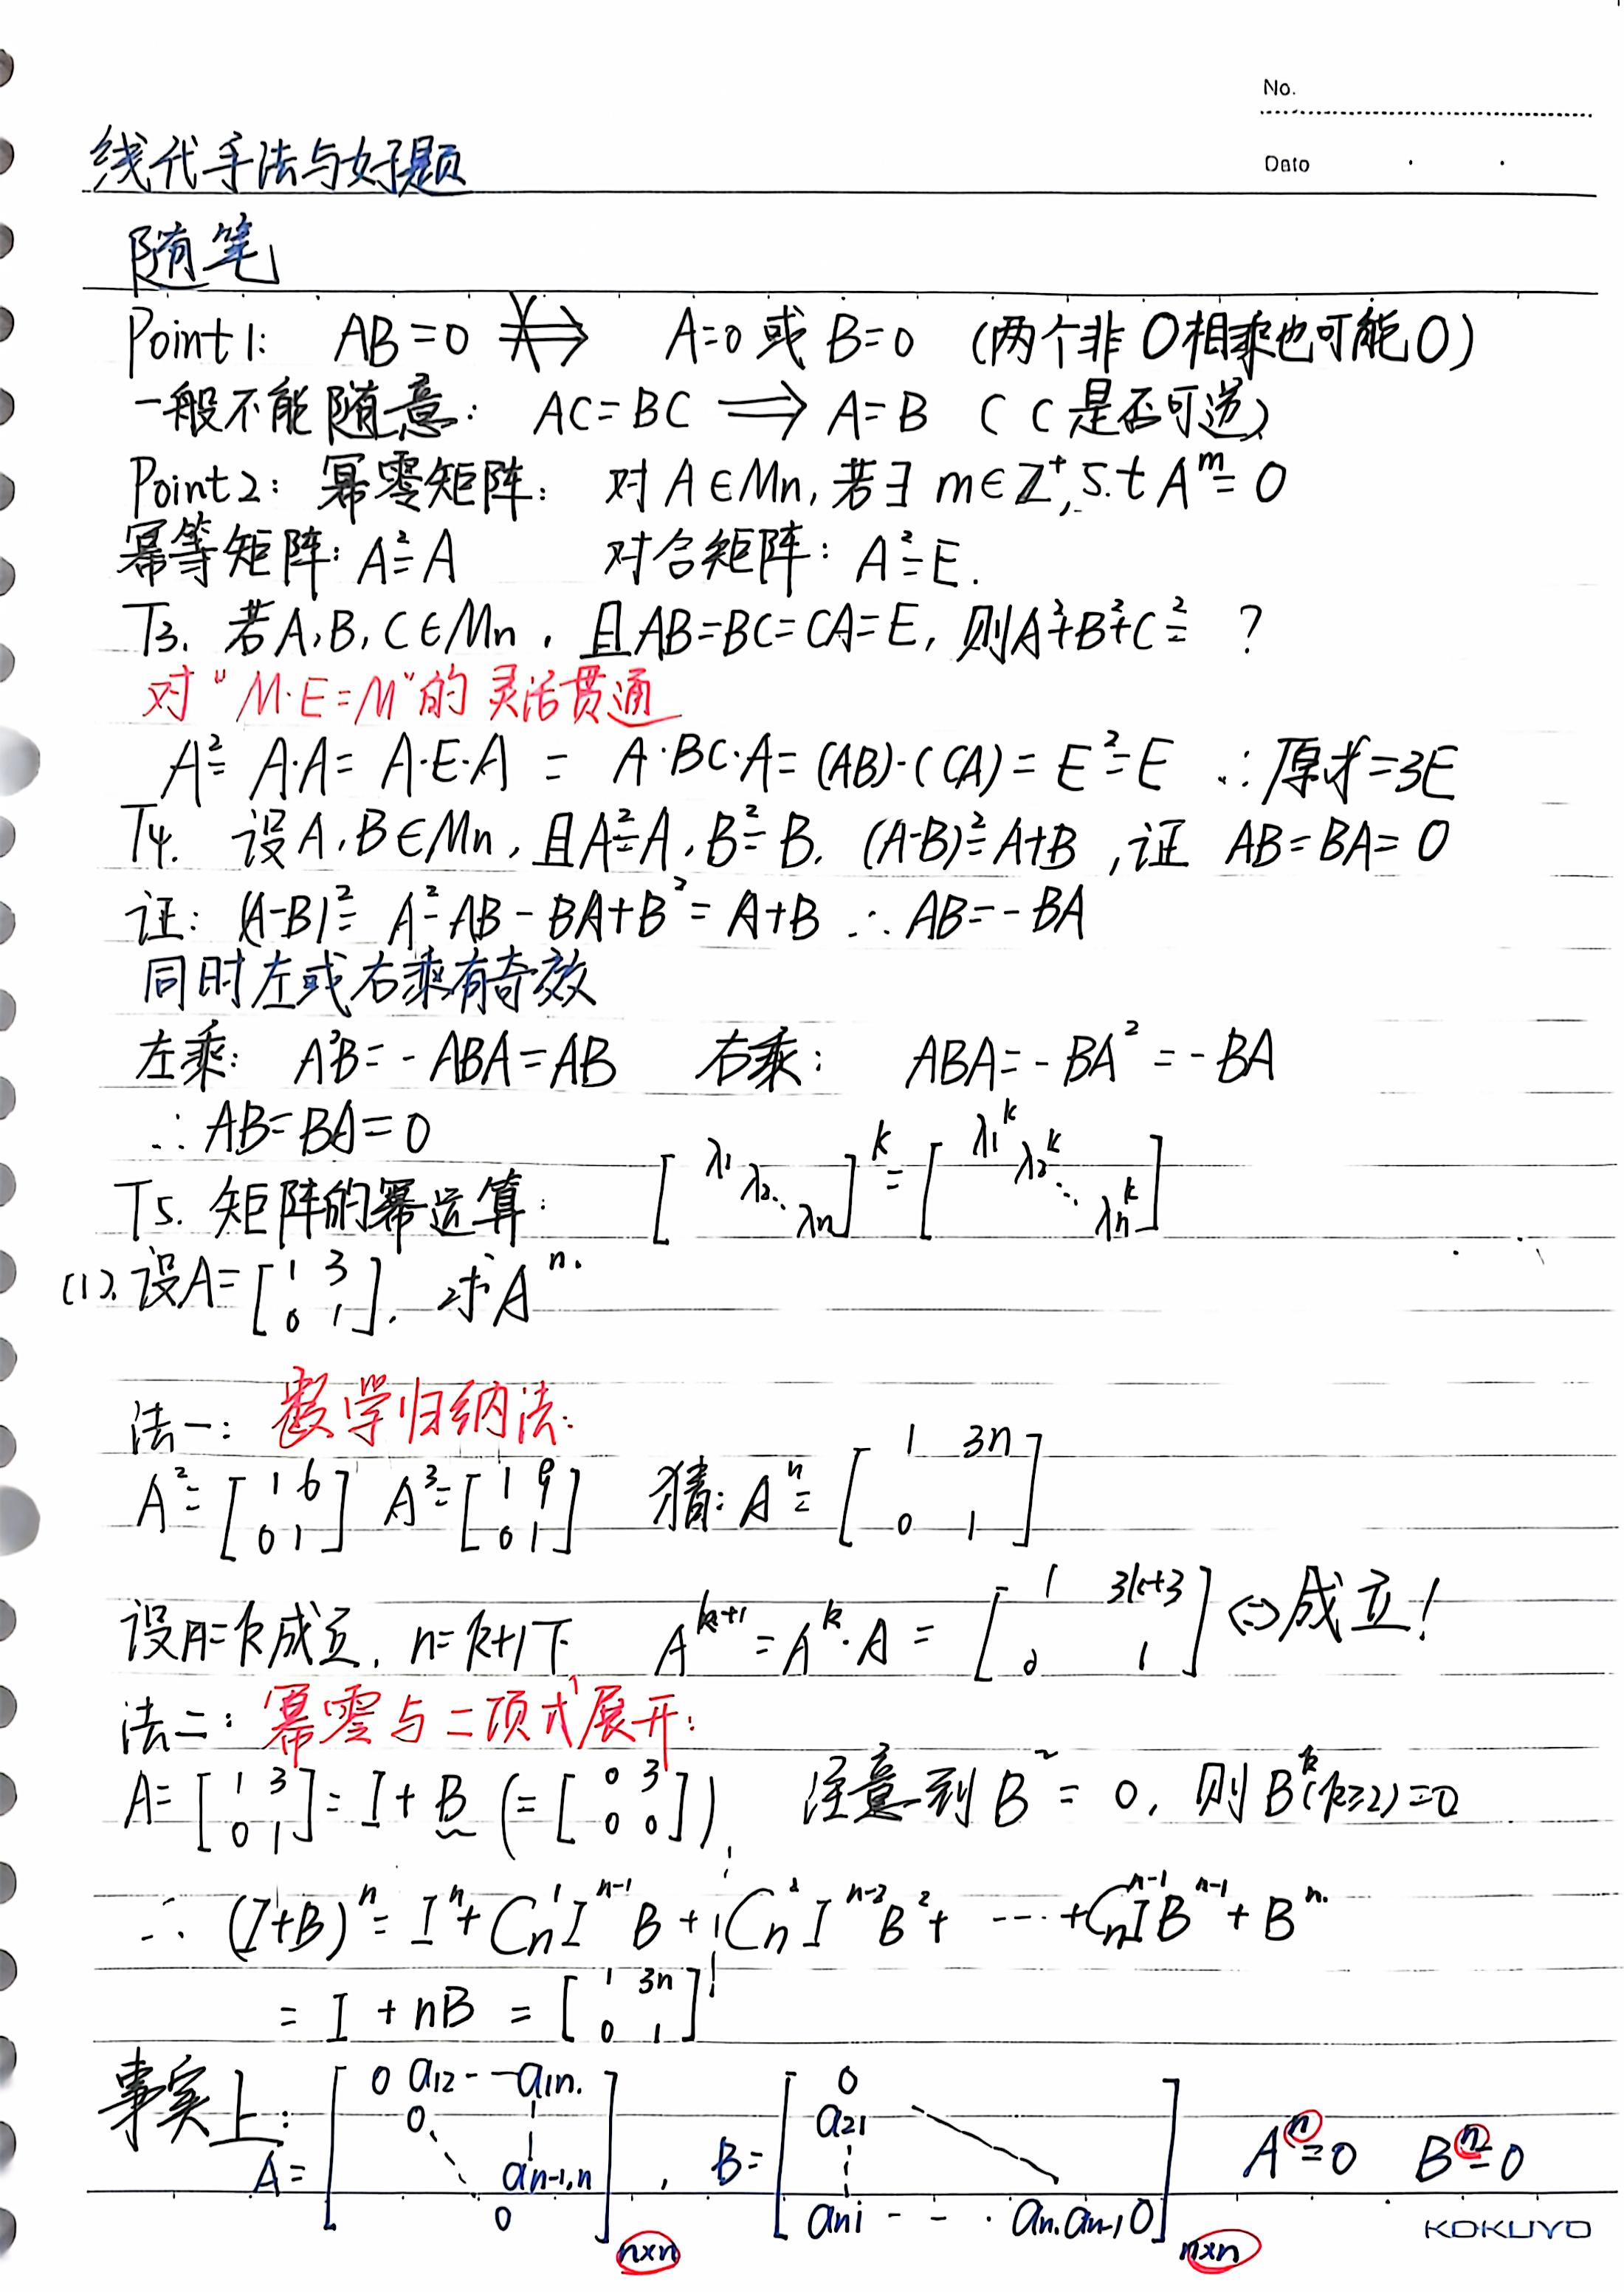 No.
Date
线代手法与好题
随笔
Point1: AB=0 ⇏ A=0 或 B=0 (两个非0相乘也可能0)
一般不能随意: AC=BC ⟹ A=B ( C是否可逆)
Point2: 幂零矩阵: 对A∈Mn, 若∃ m∈Z⁺, s.t Aᵐ=0
幂等矩阵: A²=A 对合矩阵: A²=E.
T3. 若A,B,C∈Mn, 且AB=BC=CA=E, 则A²+B²+C²= ?
对"M·E=M"的灵活贯通
A²=A·A=A·E·A=A·BC·A=(AB)·(CA)=E²=E ∴原式=3E
T4. 设A,B∈Mn, 且A²=A, B²=B, (A-B)²=A+B, 证 AB=BA=0
证: (A-B)²=A²-AB-BA+B²=A+B ∴AB=-BA
同时左或右乘有奇效
左乘: A²B=-ABA=AB 右乘: ABA=-BA²=-BA
∴AB=BA=0
T5. 矩阵的幂运算: [λ1 λ2 ⋱ λn]ᵏ=[λ1ᵏ λ2ᵏ ⋱ λnᵏ]
(1). 设A=[1 3 0 1], 求Aⁿ.
法一: 数学归纳法:
A²=[1 6 0 1] A³=[1 9 0 1] 猜: Aⁿ=[1 3n 0 1]
设n=k成立, n=k+1下 Aᵏ⁺¹=Aᵏ·A=[1 3k+3 0 1] ⇔成立!
法二: 幂零与二项式展开:
A=[1 3 0 1]=I+B (=[0 3 0 0]) 注意到B²=0, 则Bᵏ(k≥2)=0
∴ (I+B)ⁿ=Iⁿ+Cn¹Iⁿ⁻¹B+Cn²Iⁿ⁻²B²+ ---- +Cnⁿ⁻¹IBⁿ⁻¹+Bⁿ.
= I+nB=[1 3n 0 1]
事实上: A=[0 a12 -- a1n. 0 an-1,n 0]n×n, B=[0 a21 an1 -- · an.an-1 0]n×n Aⁿ=0 Bⁿ=0
KOKUYO